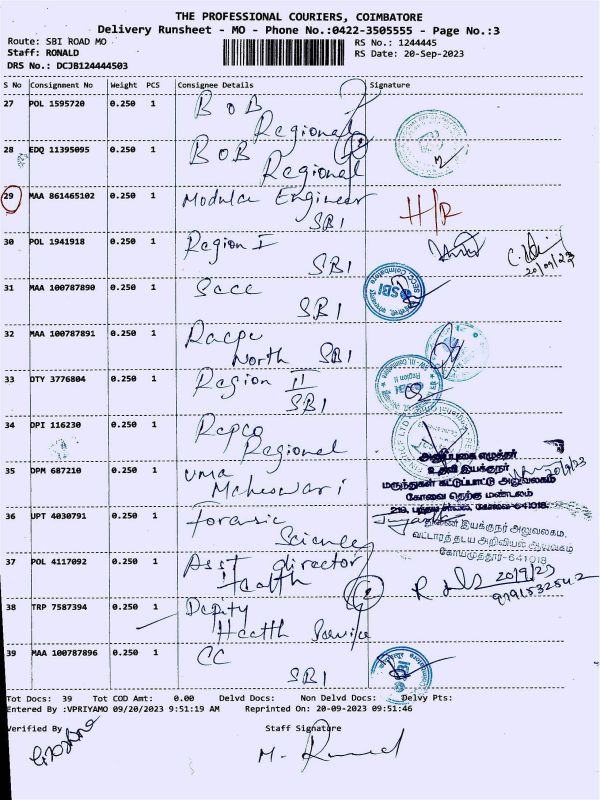 THE PROFESSIONAL COURIERS, COIMBATORE
Delivery Runsheet - MO - Phone No.:0422-3505555 - Page No.:3
Route: SBI ROAD MO RS No.: 1244445
Staff: RONALD RS Date: 20-Sep-2023
DRS No.: DCJB124444503
S No Consignment No Weight PCS Consignee Details Signature
27 POL 1595720 0.250 1 BOB
Regional
28 EDQ 11395095 0.250 1 BOB
Regional
29 MAA 861465102 0.250 1 Modular Engineer
SBI H/R
30 POL 1941918 0.250 1 Region I
SBI 20/09/23
31 MAA 100787890 0.250 1 Sccc
SBI
32 MAA 100787891 0.250 1 Racpc
North SBI
33 OTY 3776804 0.250 1 Region II
SBI
34 DPI 116230 0.250 1 Repco
Regional
35 DPM 687210 0.250 1 Uma
Maheswari
அனுப்புகை எழுத்தர்
உதவி இயக்குநர்
மருந்துகள் கட்டுப்பாட்டு அலுவலகம்
கோவை தெற்கு மண்டலம்
36 UPT 4030791 0.250 1 Forensic
Science
துணை இயக்குநர் அலுவலகம்,
வட்டாரத் தடய அறிவியல் ஆய்வகம்
கோயமுத்தூர்-641018
37 POL 4117092 0.250 1 Asst director
Health 20/9/23
9791532542
38 TRP 7587394 0.250 1 Deputy
Health Service
39 MAA 100787896 0.250 1 CC
SBI
Tot Docs: 39 Tot COD Amt: 0.00 Delvd Docs: Non Delvd Docs: Delvy Pts:
Entered By :VPRIYAMO 09/20/2023 9:51:19 AM Reprinted On: 20-09-2023 09:51:46
Verified By Staff Signature